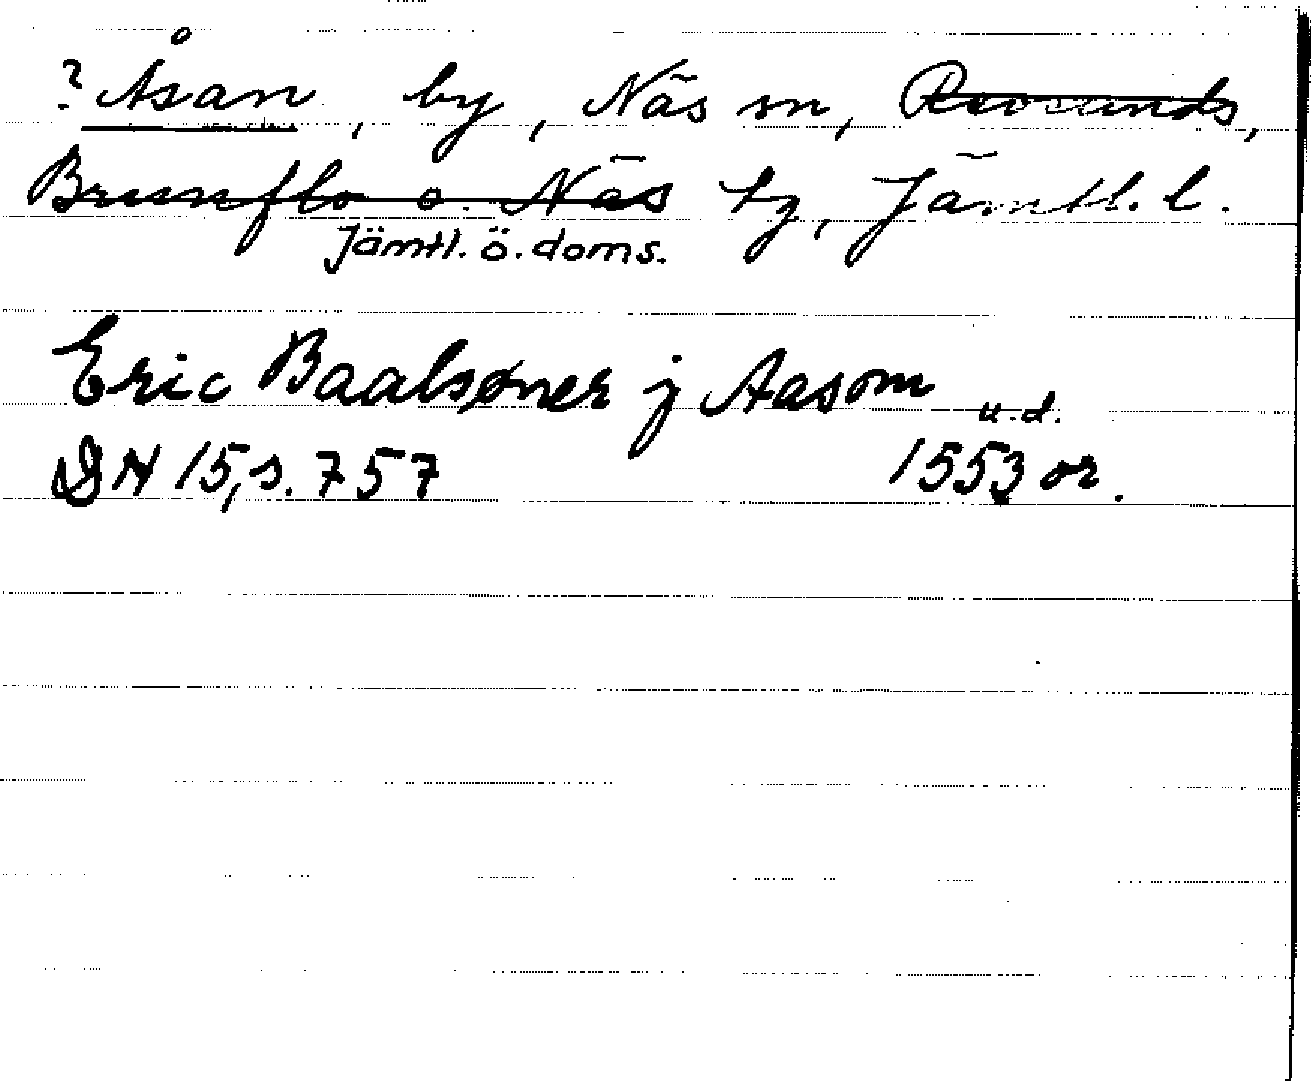 ? Åsan, by, Näs sn, Revsunds,
Brunflo o. Näs tg, Jämtl. l.
Jämtl. ö. doms.
Eric Baalsøner j Aasom
u.d.
DN 15, s. 757 1553 or.